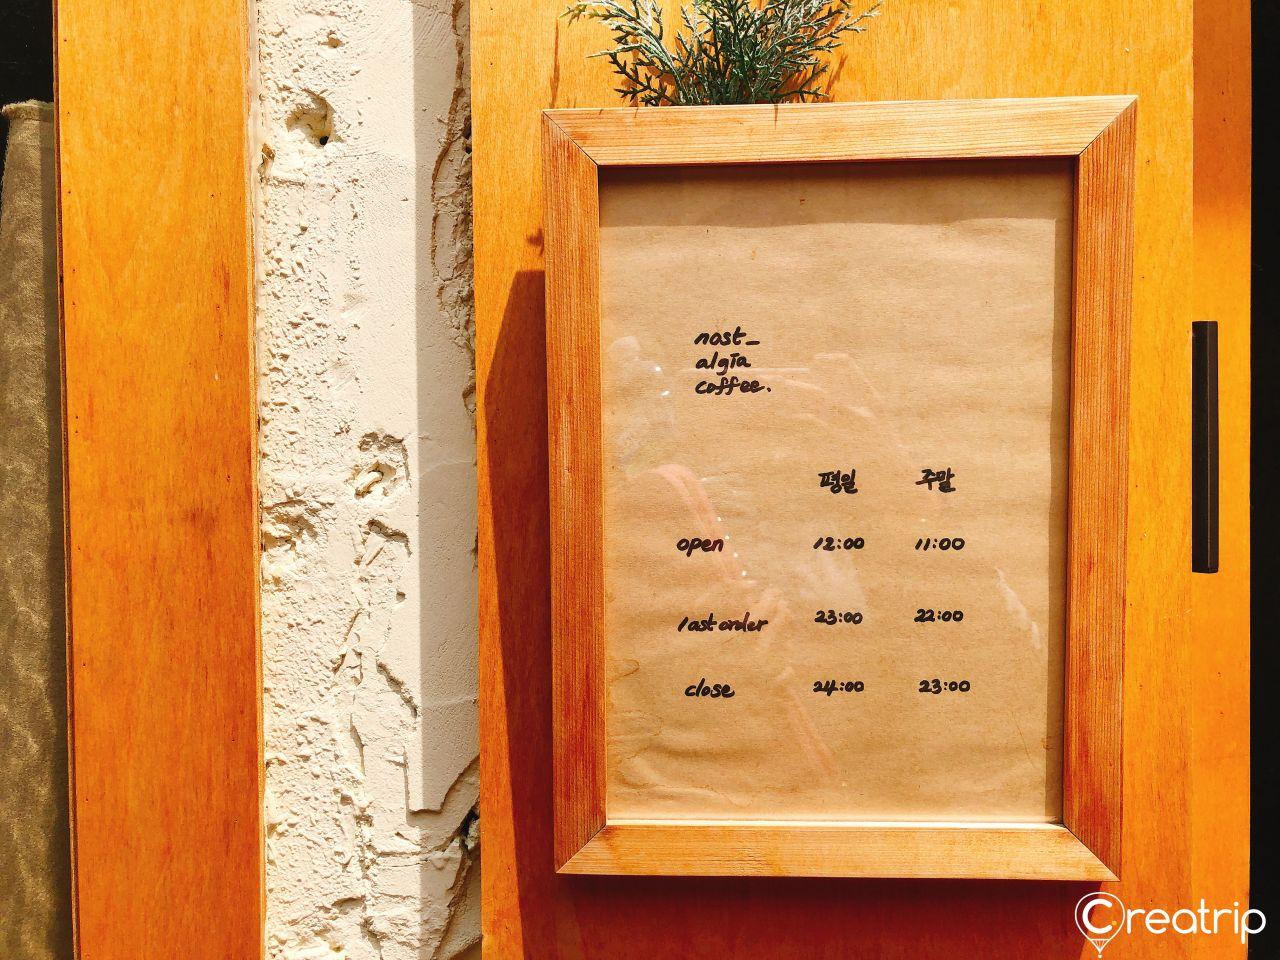 nost_
algia
coffee.
평일 주말
open 12:00 11:00
last order 23:00 22:00
close 24:00 23:00
Creatrip